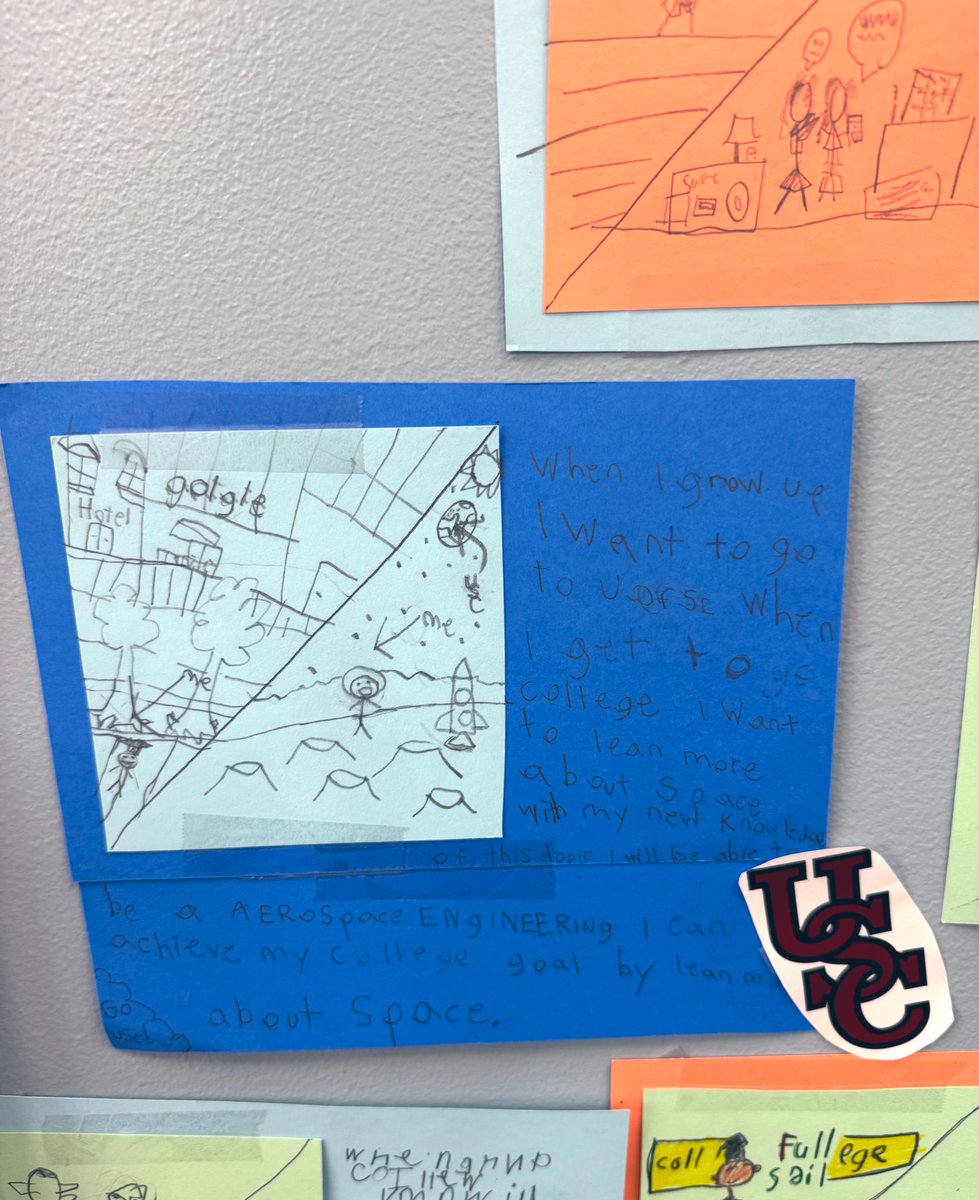 Hotel
golgle
me
me
When I grow up
I want to go
to
when
I get to go
college I want
to lean more
about space
with my new knowledge
of this topic I will be able to
be a AEROSpace ENGINEERING I can
achieve my college goal by lean
about Space.
Go
USC!
USC
coll ege
Full
sail